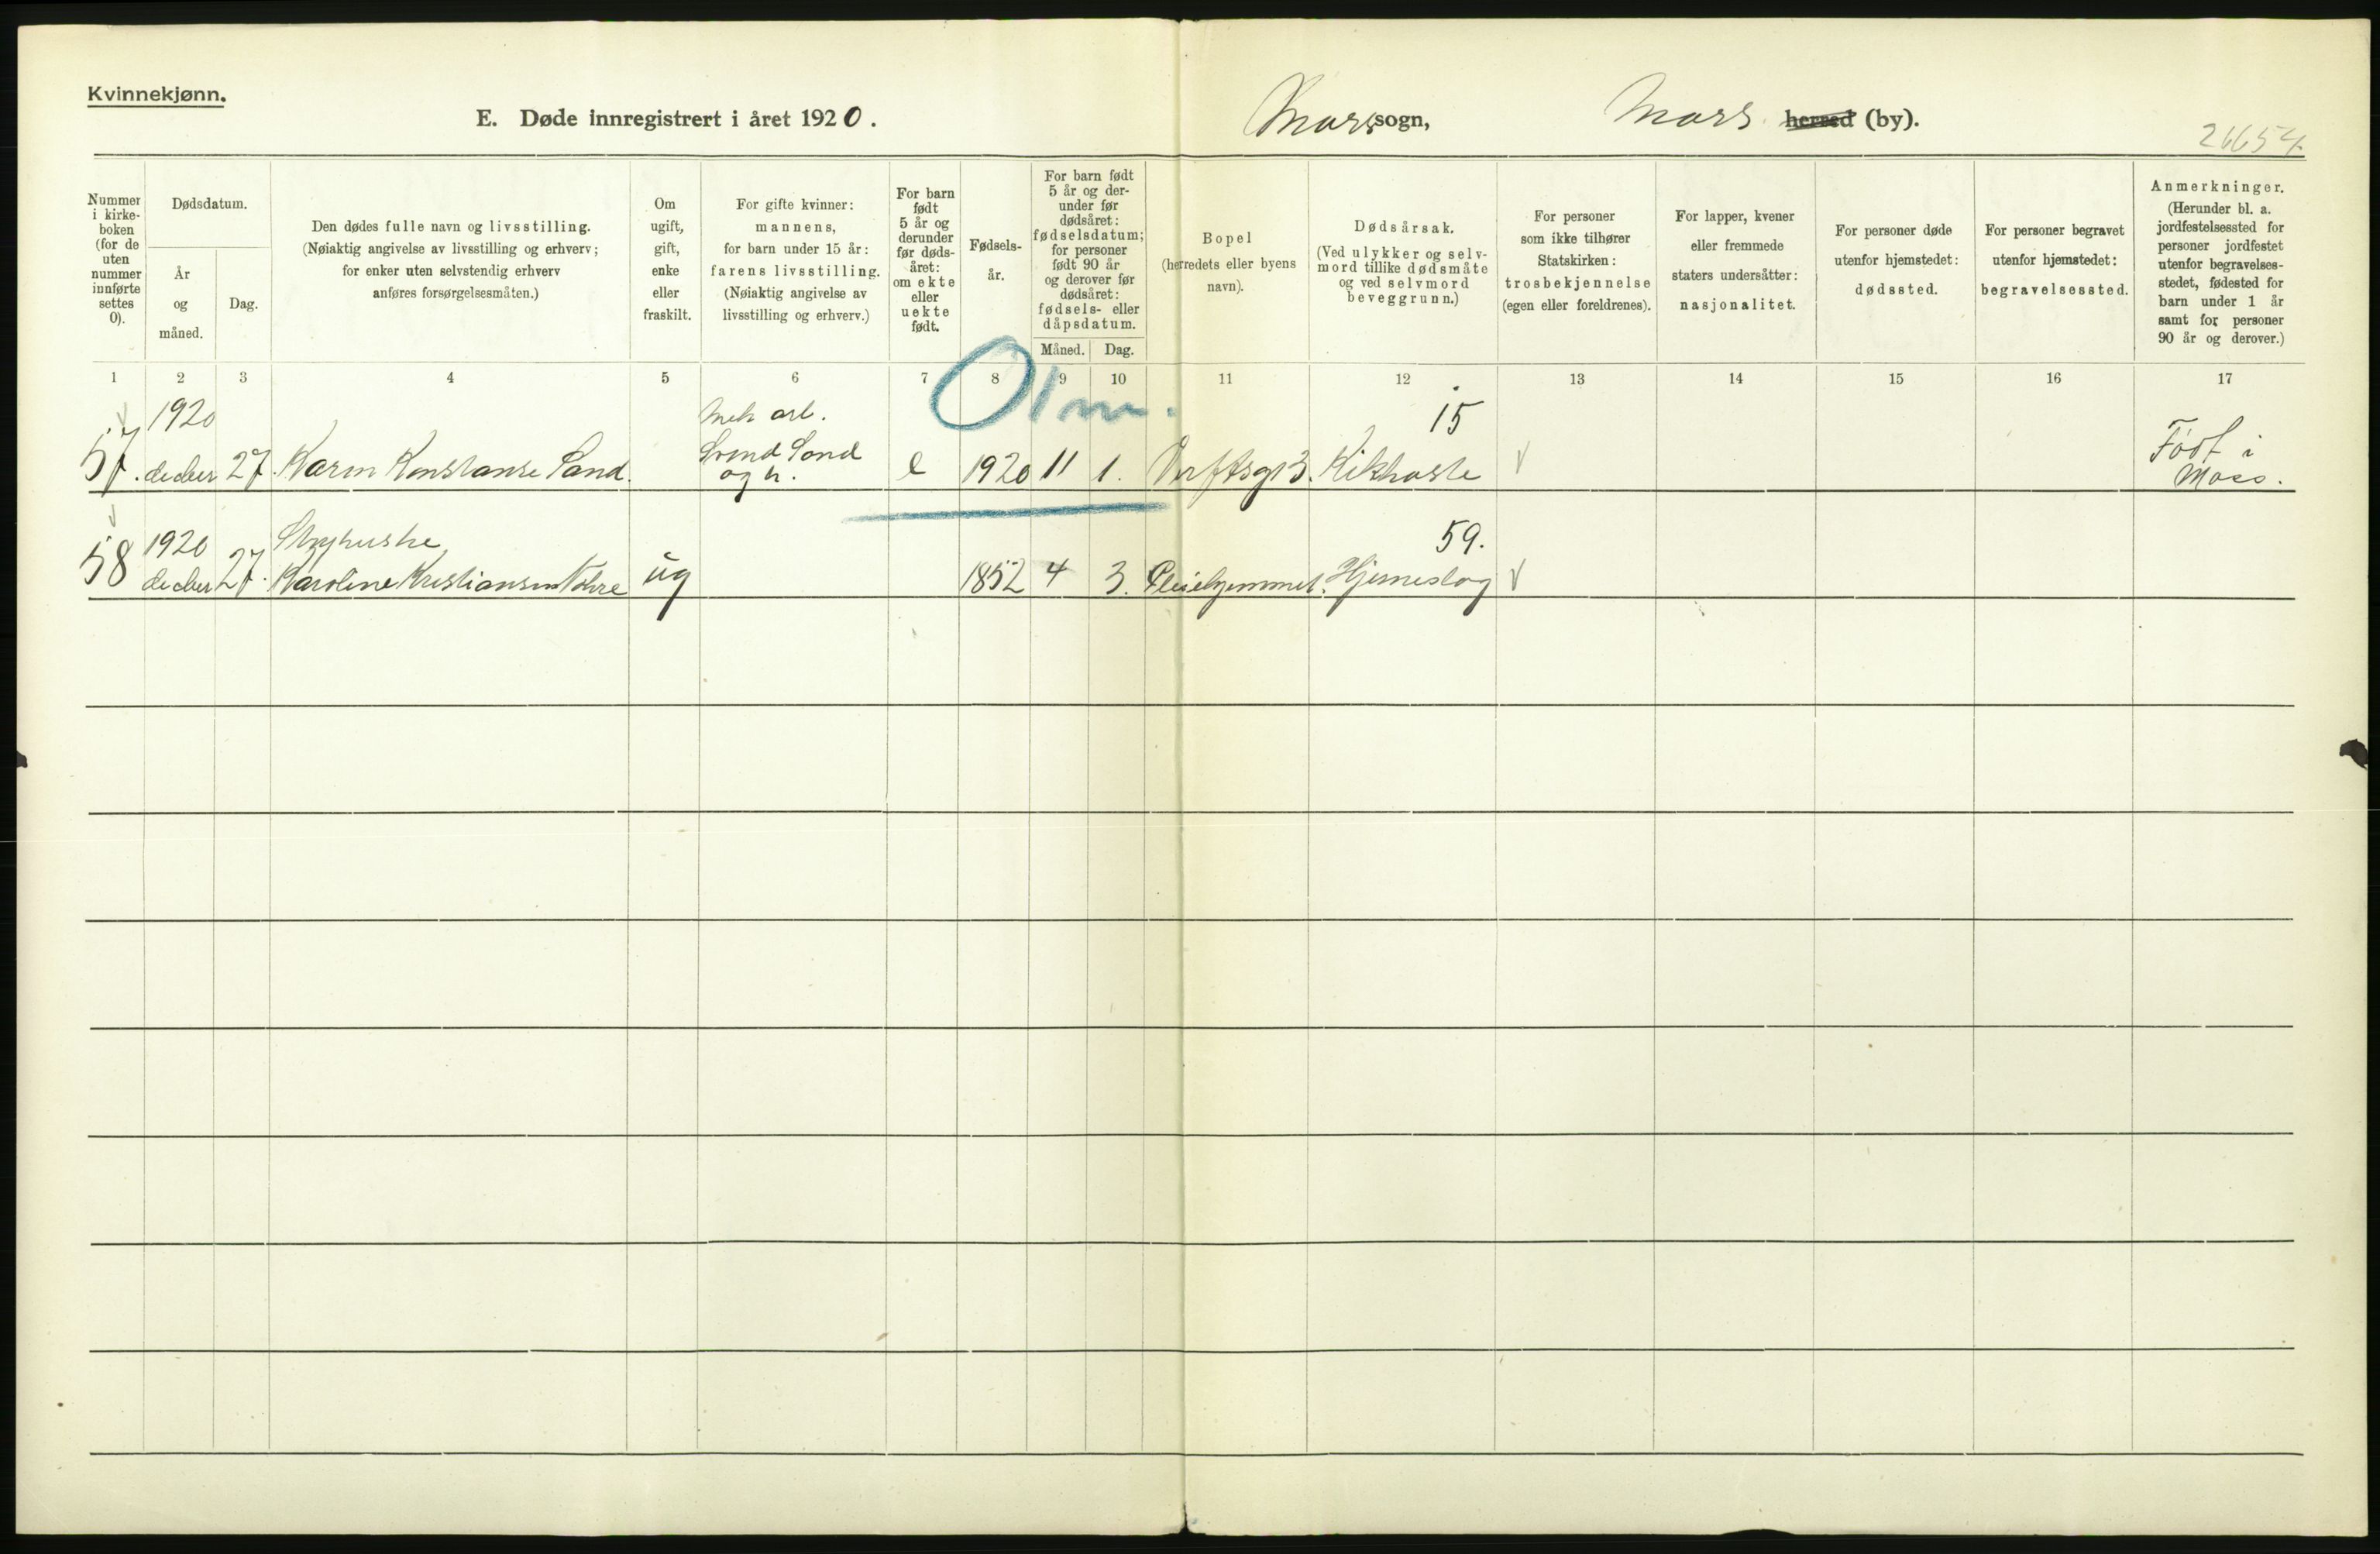 Kvinnekjønn.
E. Døde innregistrert i året 1920.
Moss sogn,
Moss herred (by).
26654.
Nummer i kirke- boken (for de uten nummer innførte settes 0).
Dødsdatum.
År og måned.
Dag.
Den dødes fulle navn og livsstilling.
(Nøiaktig angivelse av livsstilling og erhverv;
for enker uten selvstendig erhverv
anføres forsørgelsesmåten.)
Om ugift, gift, enke eller fraskilt.
For gifte kvinner:
mannens,
for barn under 15 år:
farens livsstilling.
(Nøiaktig angivelse av
livsstilling og erhverv.)
For barn født 5 år og derunder før døds- året: om ekte eller uekte født.
Fødsels- år.
For barn født 5 år og der- under før dødsåret: fødselsdatum; for personer født 90 år og derover før dødsåret: fødsels- eller dåpsdatum.
Måned.
Dag.
Bopel
(herredets eller byens
navn).
Dødsårsak.
(Ved ulykker og selv-
mord tillike dødsmåte
og ved selvmord
beveggrunn.)
For personer
som ikke tilhører
Statskirken:
trosbekjennelse
(egen eller foreldrenes).
For lapper, kvener
eller fremmede
staters undersåtter:
nasjonalitet.
For personer døde
utenfor hjemstedet:
dødssted.
For personer begravet
utenfor hjemstedet:
begravelsessted.
Anmerkninger.
(Herunder bl. a.
jordfestelsessted for
personer jordfestet
utenfor begravelses-
stedet, fødested for
barn under 1 år
samt for personer
90 år og derover.)
1 2 3 4 5 6 7 8 9 10 11 12 13 14 15 16 17
01 m.
1920
Mek arb.
15
57. decbr 27. Karin Konstanse Sand. Svend Sand og h. e 1920 11 1. Verftsg 13. Kikhoste Født i Moss.
1920
59.
58 decber 27. Karoline Kristiansen ug 1852 4 3. Pleiehjemmet. Hjerneslag